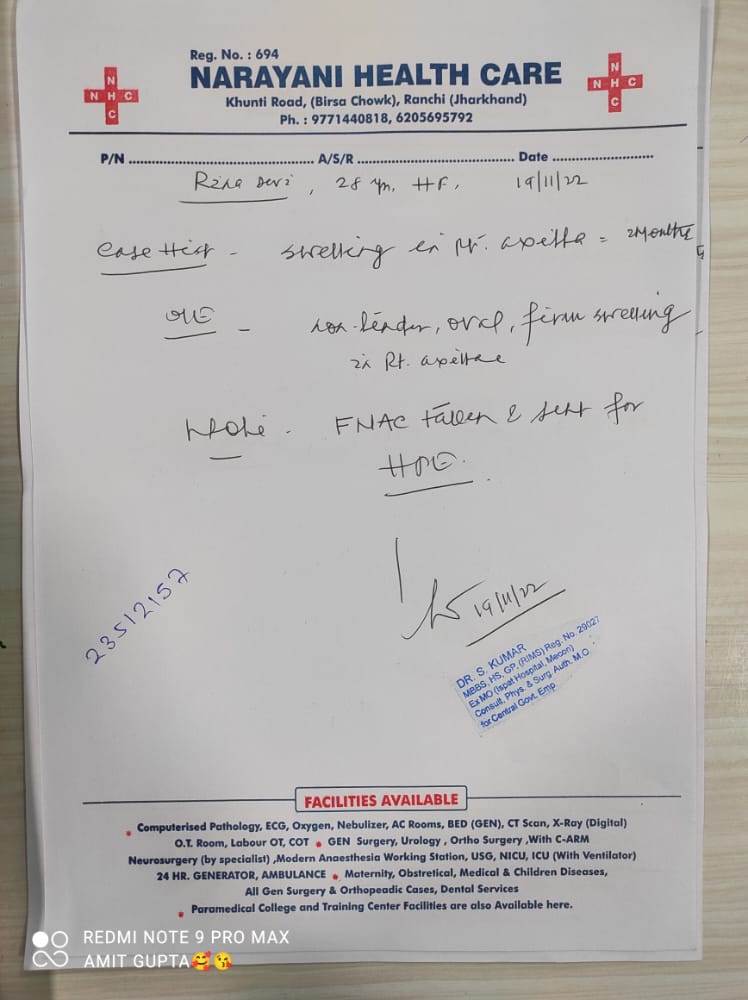 Reg. No. : 694
NARAYANI HEALTH CARE
Khunti Road, (Birsa Chowk), Ranchi (Jharkhand)
Ph. : 9771440818, 6205695792
N H C
N H C
P/N ........................ A/S/R ........................ Date ................
Rina Devi, 28 yr, HF, 19/11/22
Case Hist - swelling in Rt. axilla = 2 Months
O/E - non-tender, oval, firm swelling
in Rt. axillae
Note - FNAC taken & sent for
HPE.
19/11/22
23512157
DR. S. KUMAR
MBBS, HS, GP, (RIMS) Reg. No. 29027
Ex MO (Ispat Hospital, Mecon)
Consult, Phys. & Surg Auth. M.O.
for Central Govt. Emp.
FACILITIES AVAILABLE
Computerised Pathology, ECG, Oxygen, Nebulizer, AC Rooms, BED (GEN), CT Scan, X-Ray (Digital)
O.T. Room, Labour OT, COT • GEN Surgery, Urology , Ortho Surgery ,With C-ARM
Neurosurgery (by specialist) ,Modern Anaesthesia Working Station, USG, NICU, ICU (With Ventilator)
24 HR. GENERATOR, AMBULANCE • Maternity, Obstretical, Medical & Children Diseases,
All Gen Surgery & Orthopeadic Cases, Dental Services
• Paramedical College and Training Center Facilities are also Available here.
REDMI NOTE 9 PRO MAX
AMIT GUPTA🥰😘